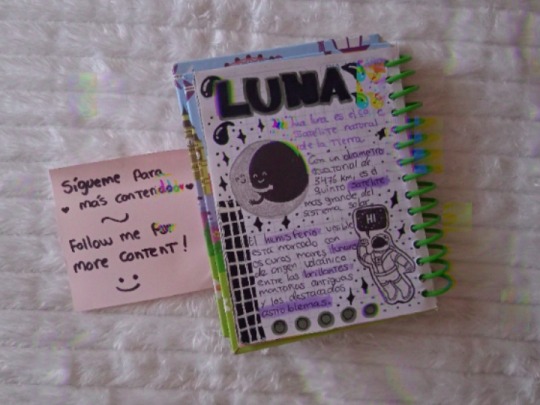 Sígueme Para
más contenido
~
Follow me For
more content!
LUNA
La luna es el
satélite natural
de la Tierra
Con un diametro
ecuatorial de
3476 km, es el
quinto satélite
mas grande del
sistema solar
El hemisferio visible
esta marcado con
oscuros mares lunares
de origen volcánico
entre las brillantes
montañas antiguas
y los destacados
astroblemas.
HI